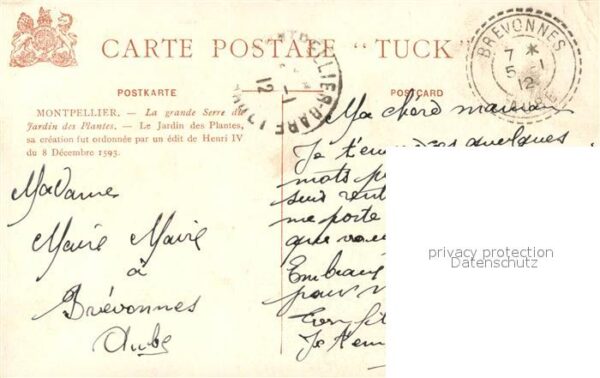 CARTE POSTALE "TUCK"
POSTKARTE
POSTCARD
MONTPELLIER. — La grande Serre du
Jardin des Plantes. — Le Jardin des Plantes,
sa création fut ordonnée par un édit de Henri IV
du 8 Décembre 1593.
BREVONNES
7 *
5 -1
12
MONTPELLIER GARE
-1
12
Madame
Marie
à
Brévonnes
Aube
Ma chère maman
Je quelques
mots
suis
me porte
que
Embrasse
pour
Ton fi
Je t'em
privacy protection
Datenschutz